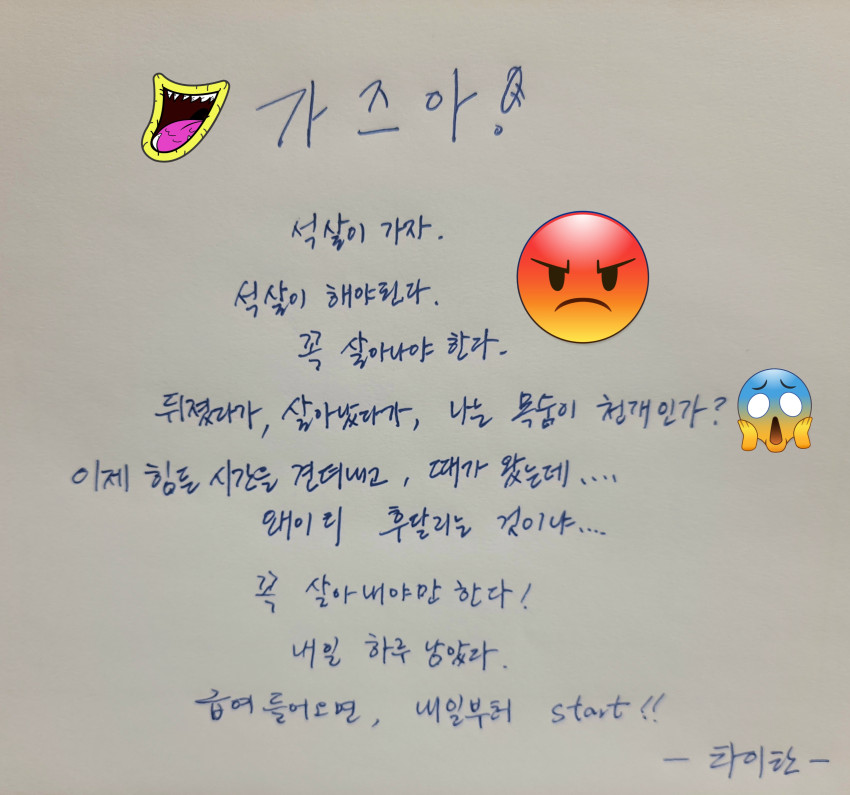 가즈아!
석살이 가자.
석살이 해야된다.
꼭 살아나야 한다.
뒤졌다가, 살아났다가, 나는 목숨이 천개인가?
이제 힘든 시간을 견뎌내고, 때가 왔는데....
왜이리 후달리는 것이냐....
꼭 살아내야만 한다!
내일 하루 남았다.
급여 들어오면, 내일부터 start!!
- 타이탄 -